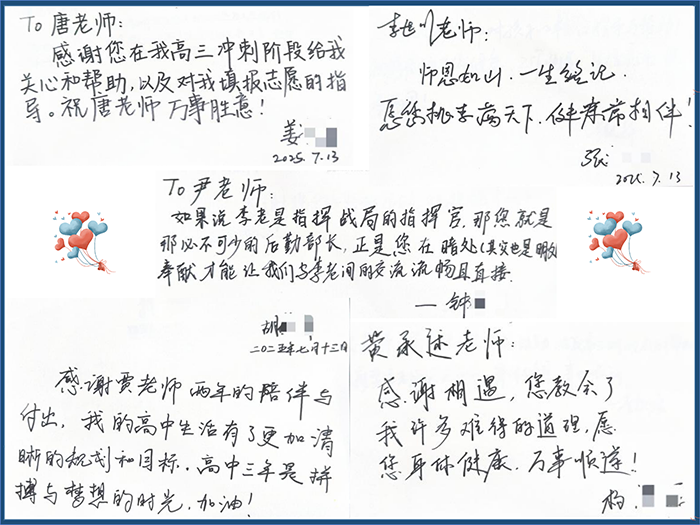 To 唐老师:
感谢您在我高三冲刺阶段给我
关心和帮助,以及对我填报志愿的指
导。祝唐老师 万事胜意!
姜
2025.7.13
李旭川老师:
师恩如山,一生铭记.
愿您桃李满天下,健康常相伴!
张
2025.7.13
To 尹老师:
如果说李老是指挥战局的指挥官,那您就是
那必不可少的后勤部长,正是您在暗处(其实也是明处)
奉献才能让我们与李老间的交流流畅且直接.
—钟
胡
二〇二五年七月十三日
感谢贾老师两年的陪伴与
付出,我的高中生活有了更加清
晰的规划和目标.高中三年是拼
搏与梦想的时光,加油!
黄承述老师:
感谢相遇,您教会了
我许多难得的道理,愿
您身体健康,万事顺遂!
杨